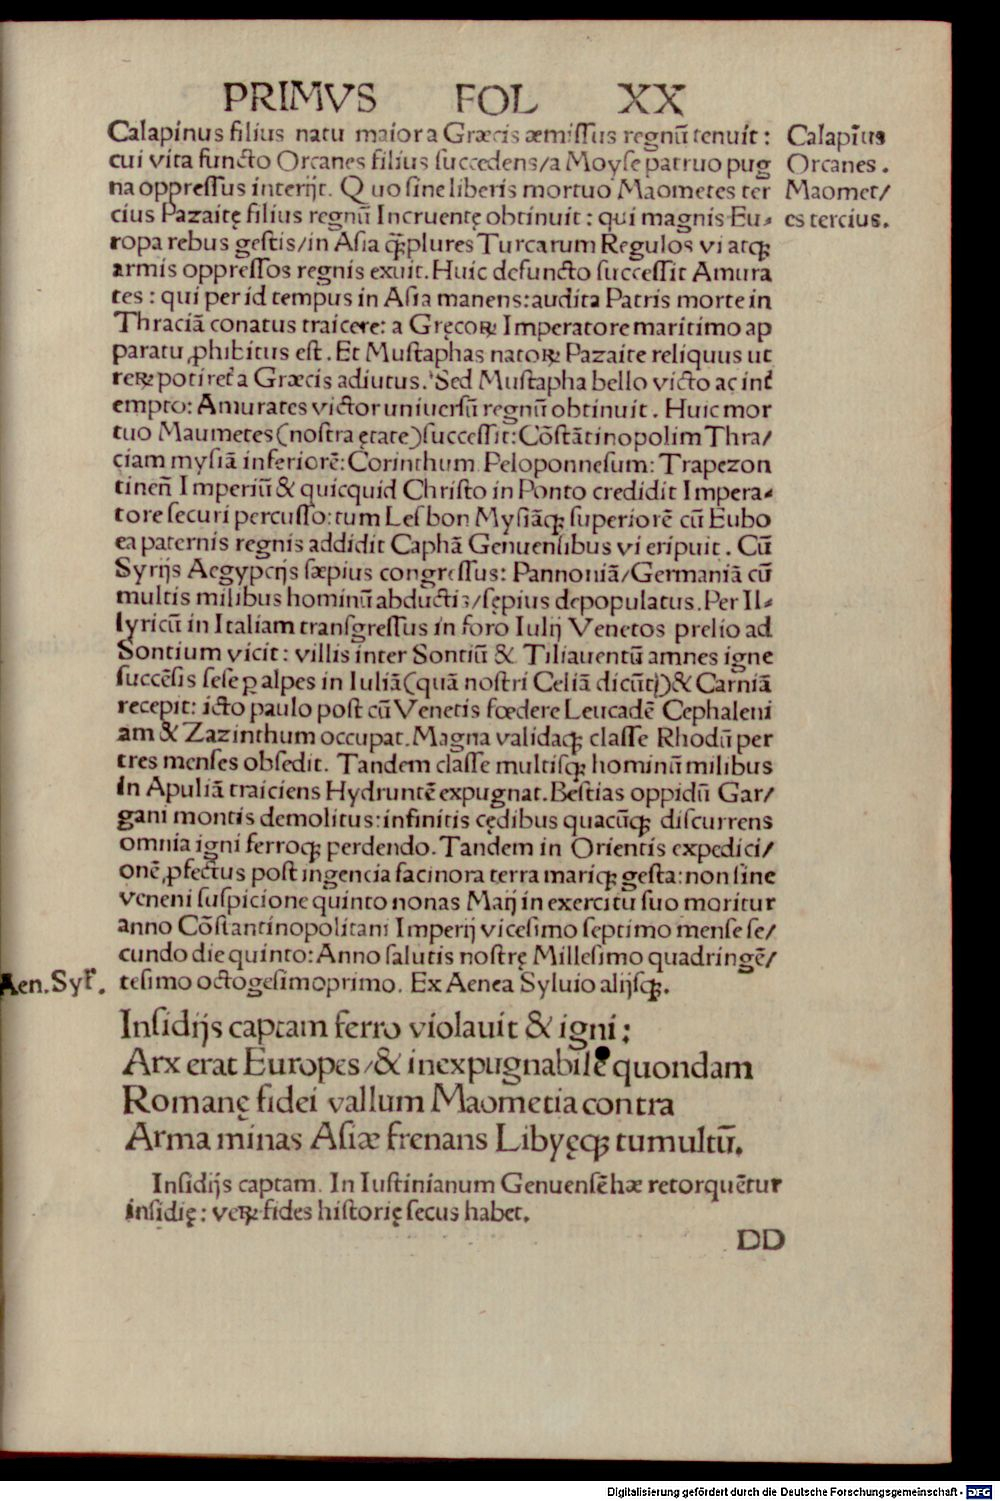 PRIMVS FOL XX
Calapinus filius natu maior a Græcis æmiſſus regnū tenuit :
cui vita functo Orcanes filius ſuccedens/a Moyſe patruo pug
na oppreſſus interijt. Quo ſine liberis mortuo Maometes ter
cius Pazaitę filius regnū Incruentę obtinuit : qui magnis Eu⸗
ropa rebus geſtis/in Aſia ꝙ̃plures Turcarum Regulos vi atqꝫ
armis oppreſſos regnis exuit. Huic defuncto ſucceſſit Amura
tes : qui per id tempus in Aſia manens: audita Patris morte in
Thraciā conatus traicere: a Gręcoꝝ Imperatore maritimo ap
paratu ꝓhibitus eſt. Et Muſtaphas natoꝝ Pazaite reliquus ut
reꝝ potiret᷑ a Græcis adiutus. Sed Muſtapha bello victo ac int̄
empto: Amurates victor uniuerſū regnū obtinuit. Huic mor
tuo Maumetes (noſtra ętate) ſucceſſit: Cōſtātinopolim Thra/
ciam myſiā inferiorē: Corinthum Peloponneſum: Trapezon
tineñ Imperiū & quicquid Chriſto in Ponto credidit Impera⸗
tore ſecuri percuſſo: tum Leſbon Myſiāqꝫ ſuperiorē cū Eubo
ea paternis regnis addidit Caphā Genuenſibus vi eripuit. Cū
Syrijs Aegypcijs ſæpius congreſſus: Pannoniā/Germaniā cū
multis milibus hominū abductis/ſępius depopulatus. Per Il⸗
lyricū in Italiam tranſgreſſus in foro Iulij Venetos prelio ad
Sontium vicit : villis inter Sontiū & Tiliauentū amnes igne
ſuccēſis ſeſe ꝑ alpes in Iuliā (quā noſtri Celiā dicūt) & Carniā
recepit: icto paulo poſt cū Venetis fœdere Leucadē Cephaleni
am & Zazinthum occupat. Magna validaqꝫ claſſe Rhodū per
tres menſes obſedit. Tandem claſſe multiſqꝫ hominū milibus
in Apuliā traiciens Hydruntē expugnat. Beſtias oppidū Gar/
gani montis demolitus: infinitis cędibus quacūqꝫ diſcurrens
omnia igni ferroqꝫ perdendo. Tandem in Orientis expedici/
onē ꝓfectus poſt ingencia facinora terra mariqꝫ geſta: non ſine
veneni ſuſpicione quinto nonas Maij in exercitu ſuo moritur
anno Cōſtantinopolitani Imperij viceſimo ſeptimo menſe ſe/
cundo die quinto: Anno ſalutis noſtrę Milleſimo quadringē/
teſimo octogeſimoprimo. Ex Aenea Syluio alijſqꝫ.
Calapīus
Orcanes.
Maomet/
es tercius.
Aen. Syl᷑.
Inſidijs captam ferro violauit & igni:
Arx erat Europes/& inexpugnabile quondam
Romanę fidei vallum Maometia contra
Arma minas Aſiæ frenans Libyęqꝫ tumultū.
Inſidijs captam. In Iuſtinianum Genuenſē hæ retorquētur
inſidię : veꝝ fides hiſtorię ſecus habet.
DD
Digitalisierung gefördert durch die Deutsche Forschungsgemeinschaft - DFG